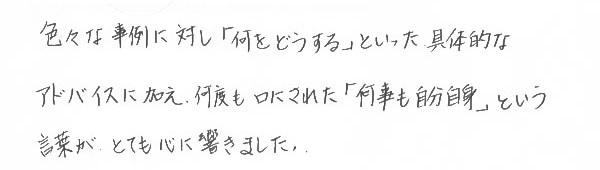 色々な事例に対し「何をどうする」といった具体的な
アドバイスに加え、何度も口にされた「何事も自分自身」という
言葉が、とても心に響きました。